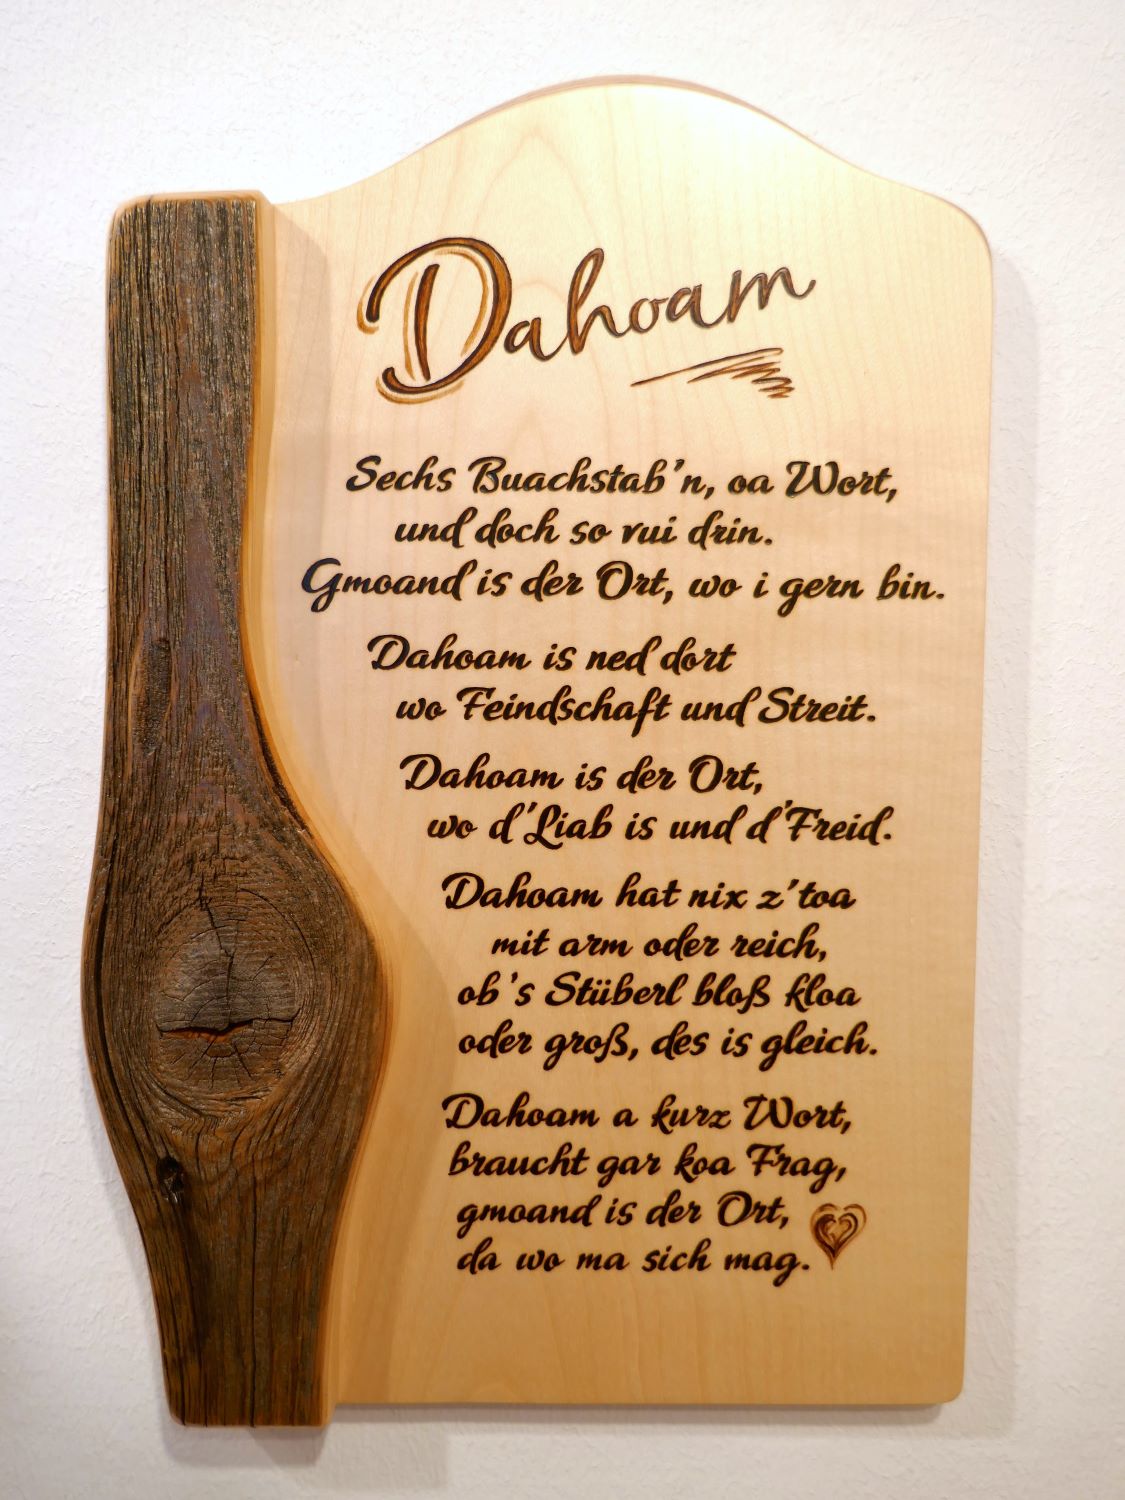 Dahoam
Sechs Buachstab'n, oa Wort,
und doch so vui drin.
Gmoand is der Ort, wo i gern bin.
Dahoam is ned dort
wo Feindschaft und Streit.
Dahoam is der Ort,
wo d'Liab is und d'Freid.
Dahoam hat nix z'toa
mit arm oder reich,
ob's Stüberl bloß kloa
oder groß, des is gleich.
Dahoam a kurz Wort,
braucht gar koa Frag,
gmoand is der Ort,
da wo ma sich mag.